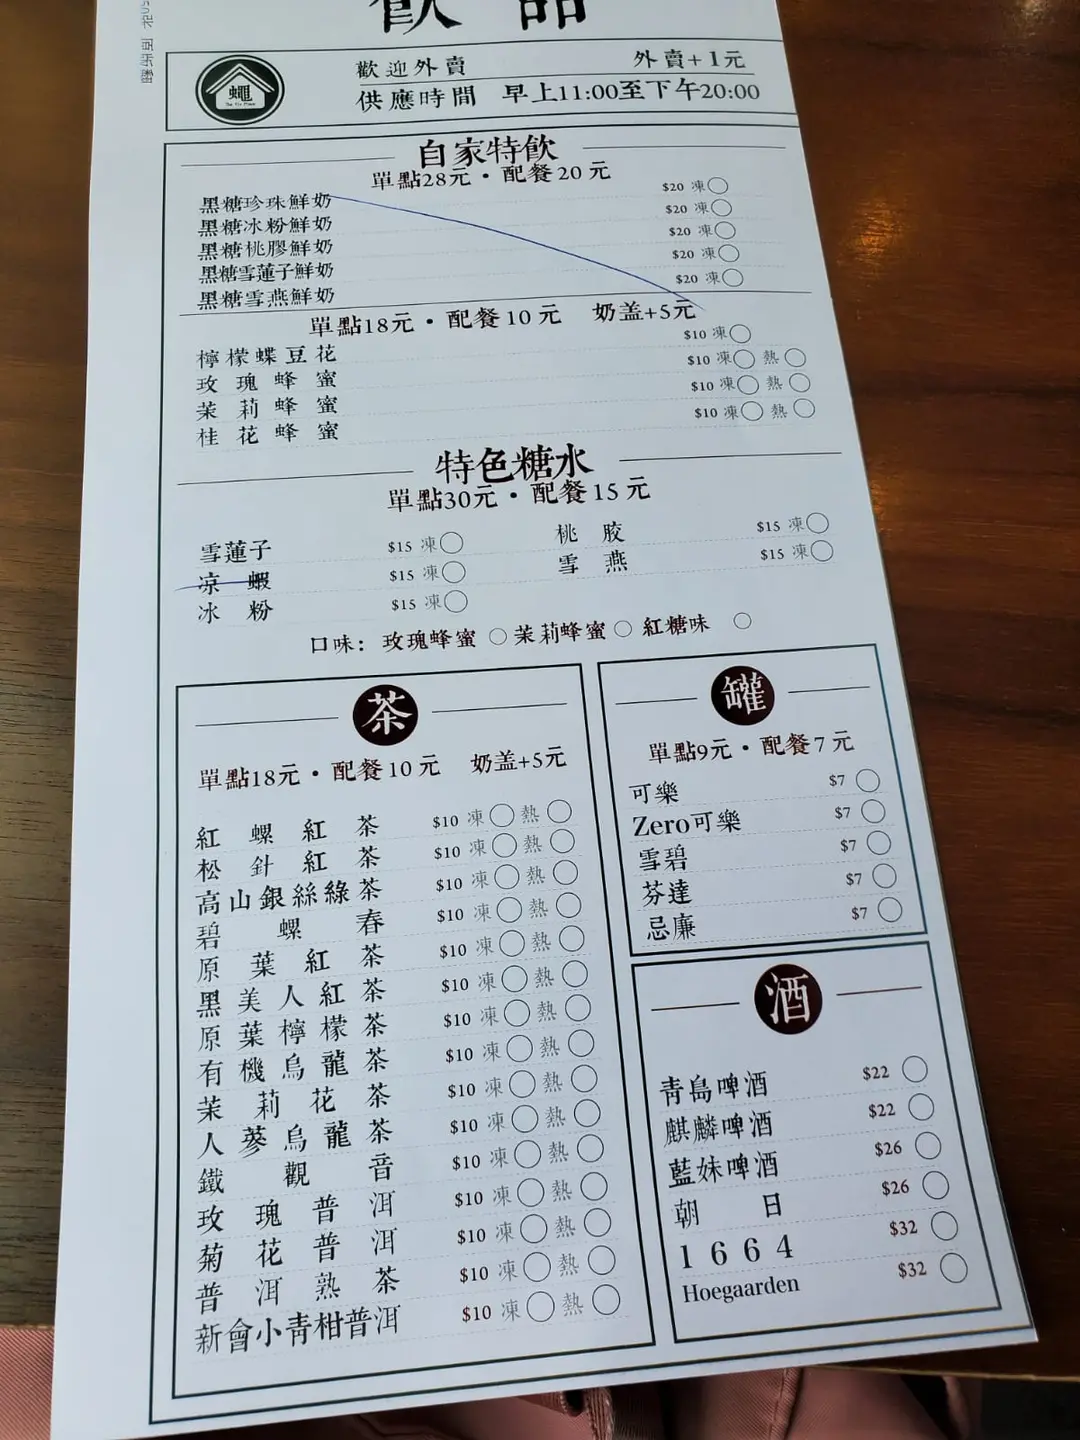 飲品
歡迎外賣 外賣+1元
供應時間 早上11:00至下午20:00
蠅
自家特飲
單點28元・配餐20元
黑糖珍珠鮮奶 $20 凍
黑糖冰粉鮮奶 $20 凍
黑糖桃膠鮮奶 $20 凍
黑糖雪蓮子鮮奶 $20 凍
黑糖雪燕鮮奶 $20 凍
單點18元・配餐10元 奶盖+5元
檸檬蝶豆花 $10 凍
玫瑰蜂蜜 $10 凍 熱
茉莉蜂蜜 $10 凍 熱
桂花蜂蜜 $10 凍 熱
特色糖水
單點30元・配餐15元
雪蓮子 $15 凍 桃胶 $15 凍
凉蝦 $15 凍 雪燕 $15 凍
冰粉 $15 凍
口味：玫瑰蜂蜜 茉莉蜂蜜 紅糖味
茶
單點18元・配餐10元 奶盖+5元
紅螺紅茶 $10 凍 熱
松針紅茶 $10 凍 熱
高山銀絲綠茶 $10 凍 熱
碧螺春 $10 凍 熱
原葉紅茶 $10 凍 熱
黑美人紅茶 $10 凍 熱
原葉檸檬茶 $10 凍 熱
有機烏龍茶 $10 凍 熱
茉莉花茶 $10 凍 熱
人蔘烏龍茶 $10 凍 熱
鐵觀音 $10 凍 熱
玫瑰普洱 $10 凍 熱
菊花普洱 $10 凍 熱
普洱熟茶 $10 凍 熱
新會小青柑普洱 $10 凍 熱
罐
單點9元・配餐7元
可樂 $7
Zero可樂 $7
雪碧 $7
芬達 $7
忌廉 $7
酒
青島啤酒 $22
麒麟啤酒 $22
藍妹啤酒 $26
朝日 $26
1664 $32
Hoegaarden $32